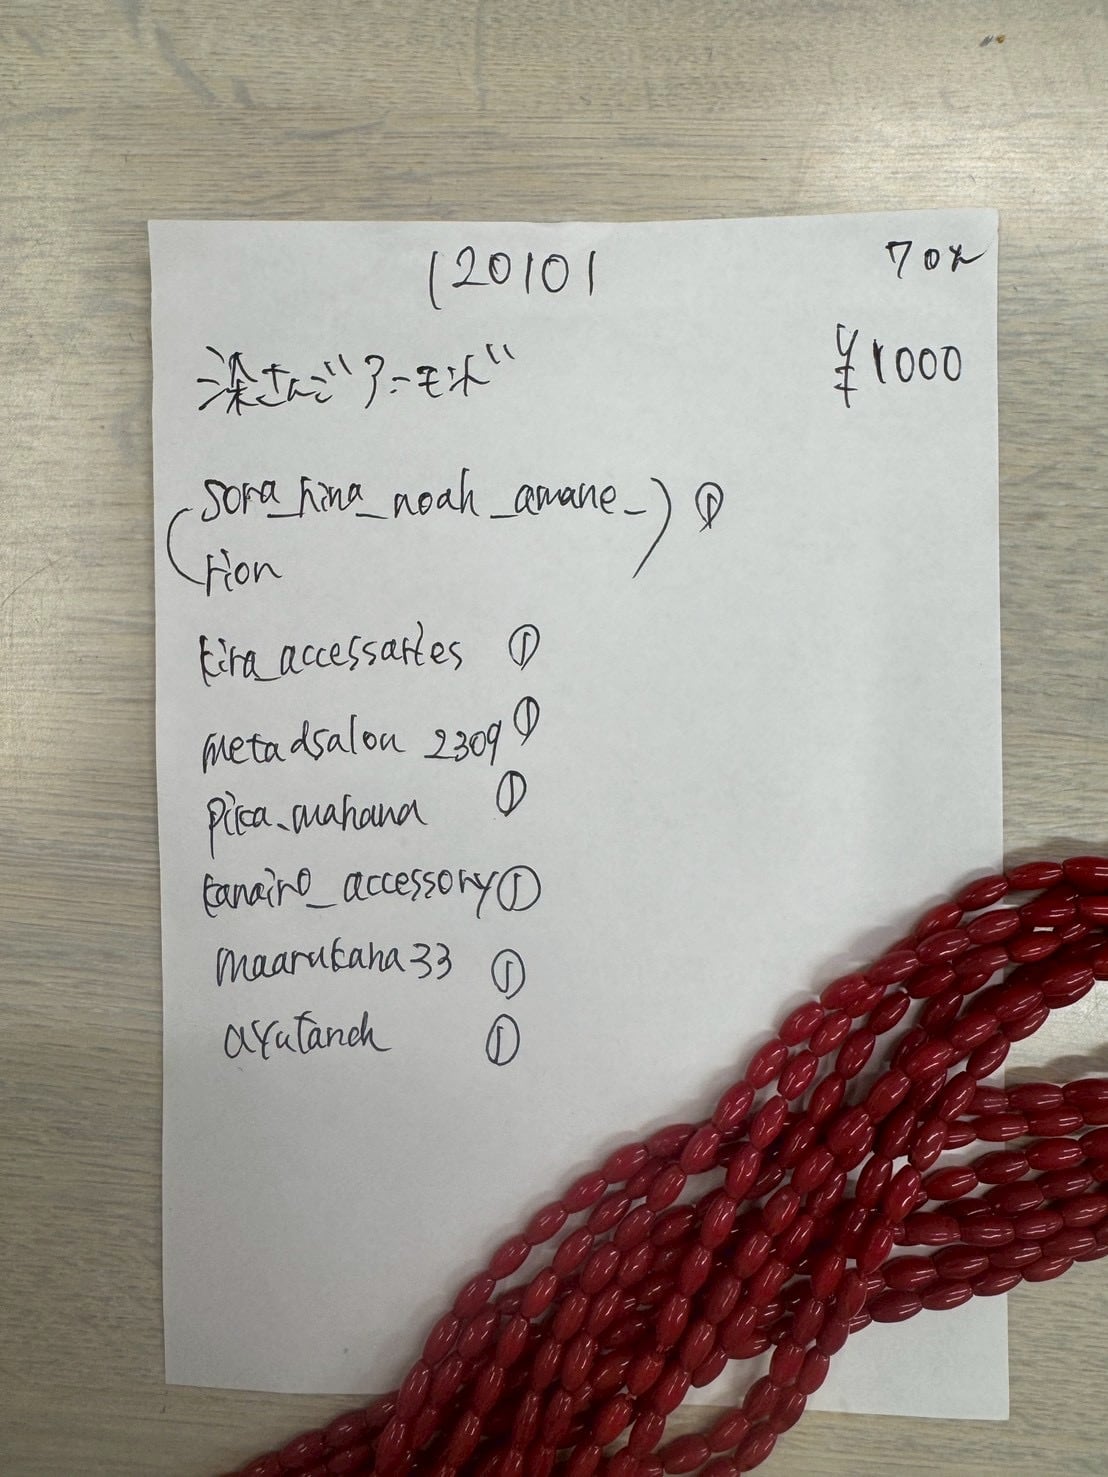 120101 70%
染さんごアーモンド ¥1000
(sora_hina_noah_amane_ ①
rion)
kira_accessaries ①
metadsalon 2309 ①
pika_mahana ①
kanairo_accessory ①
maarukaha33 ①
ayutaneh ①